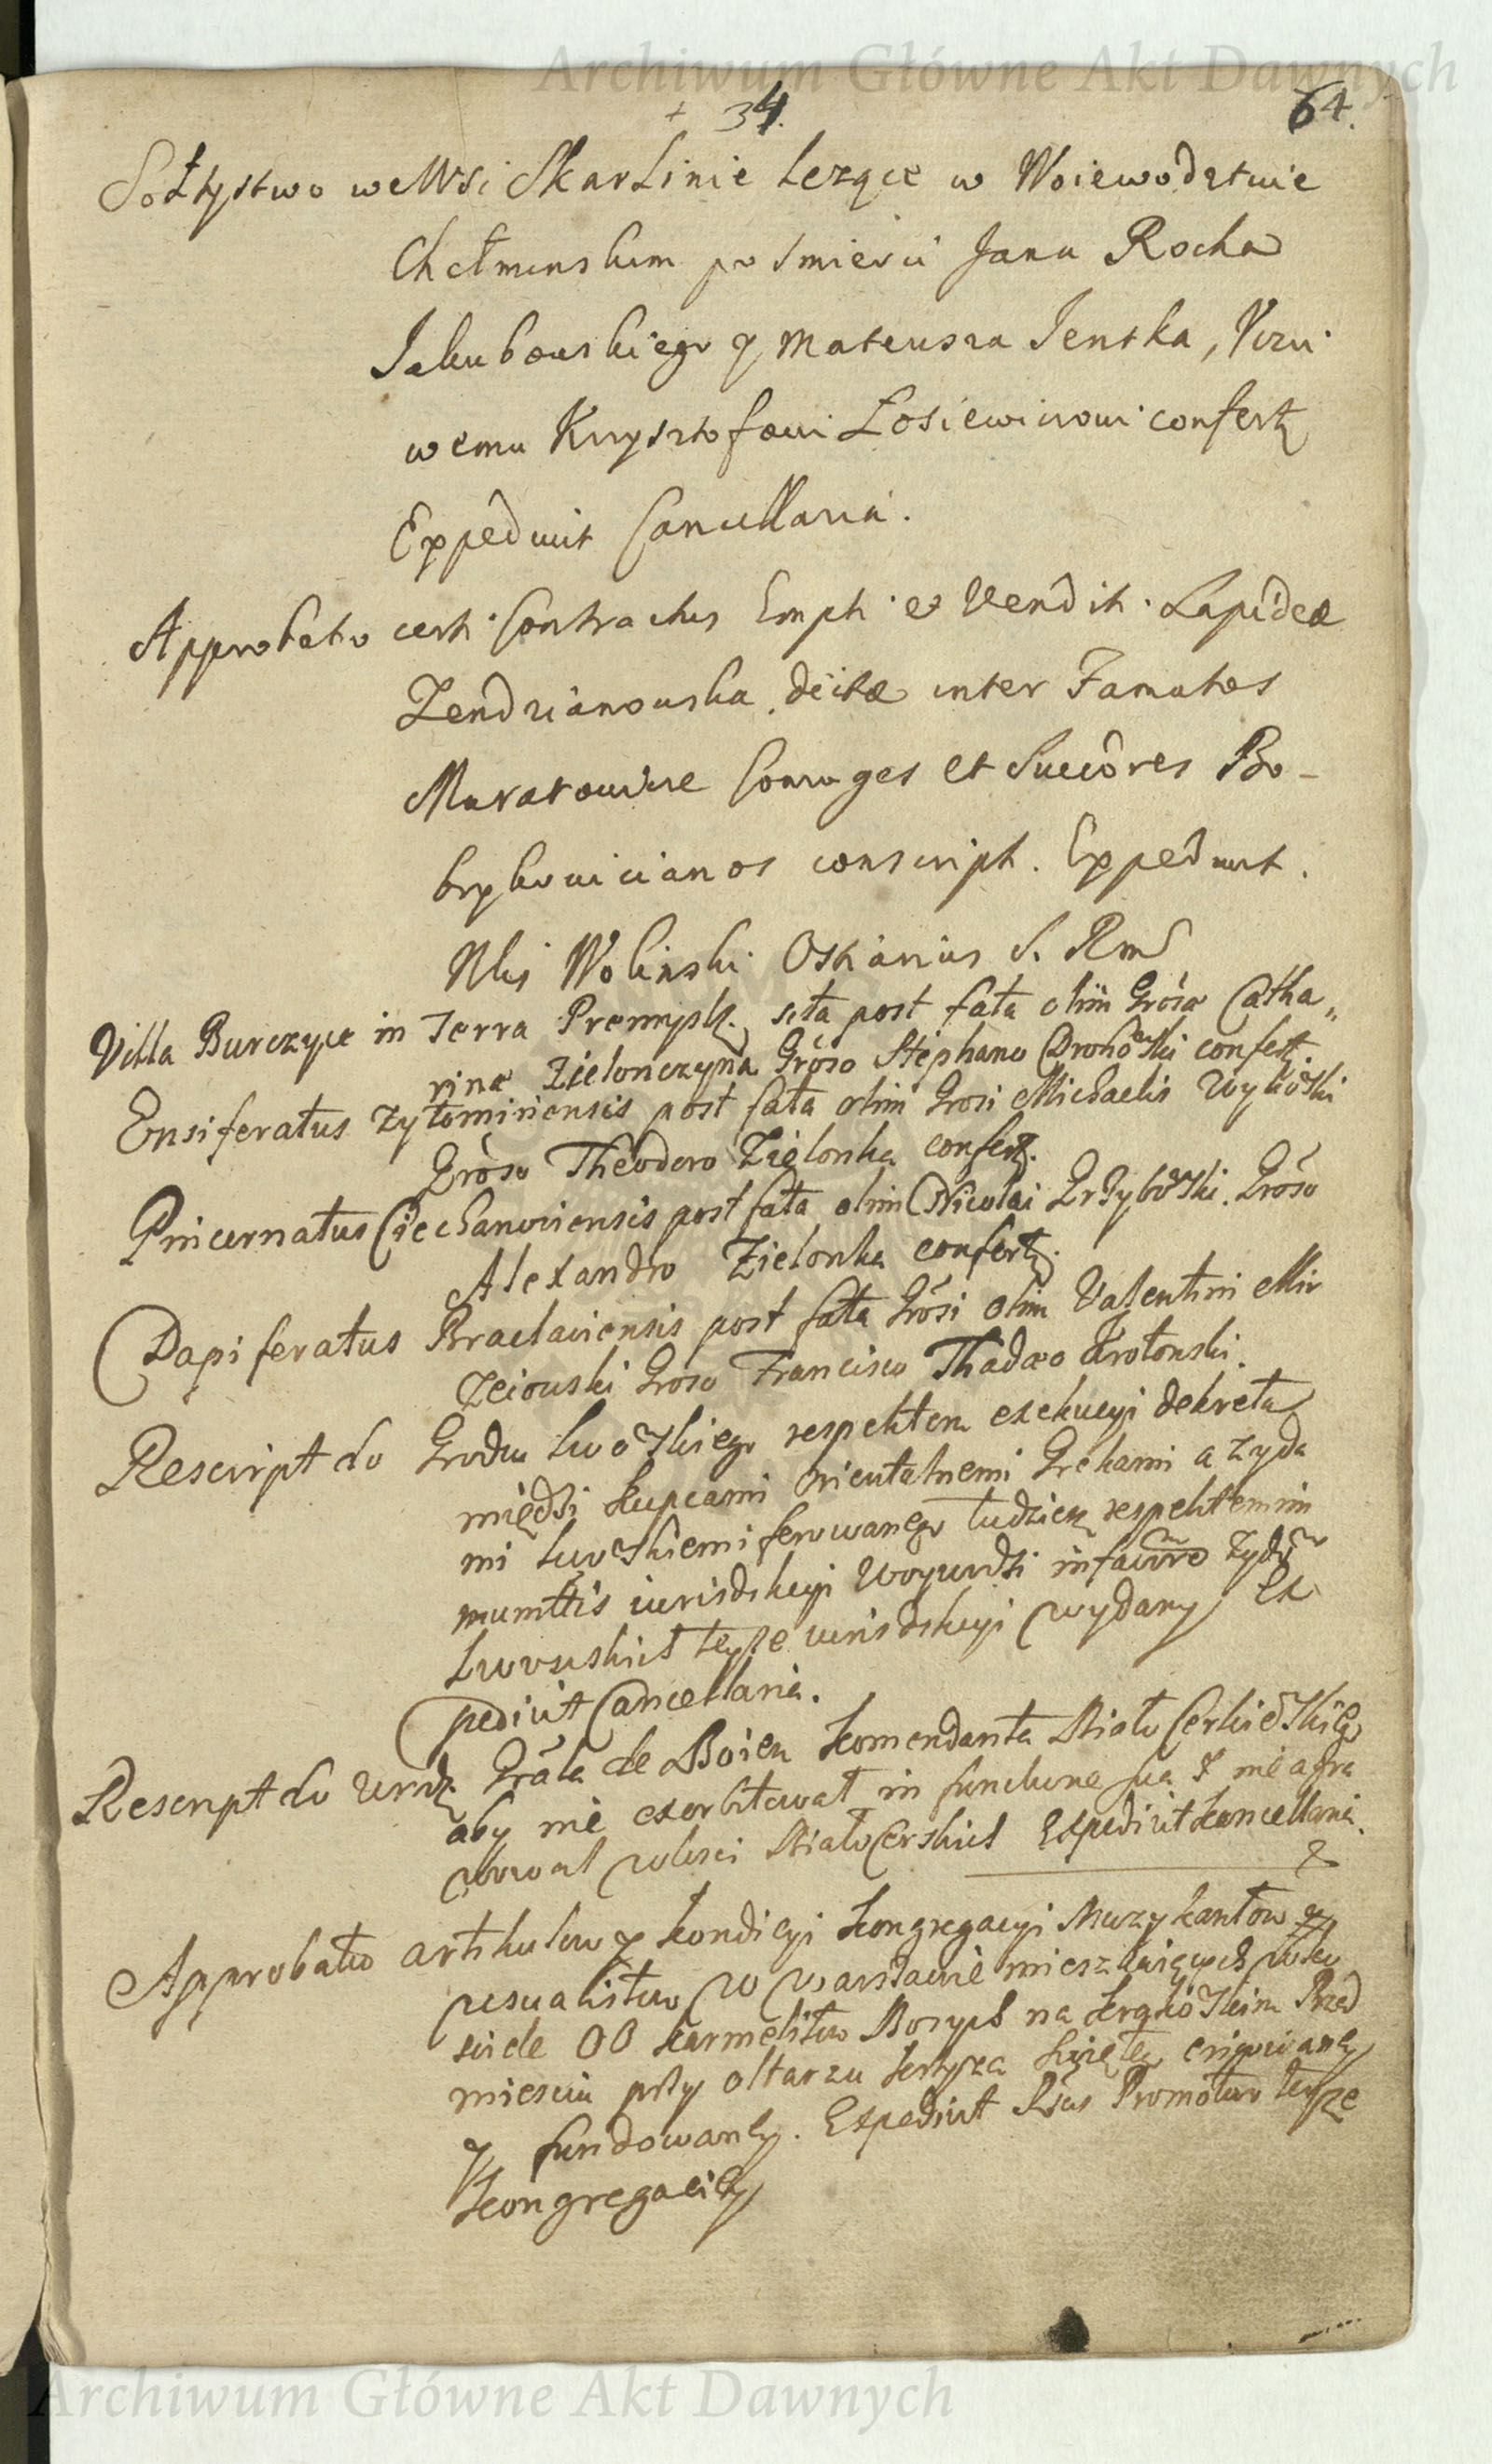 Archiwum Główne Akt Dawnych
+ 34. 64.
Sołtystwo we Wsi Skarlinie Lezące w Woiewodztwie
Chełminskim po smierci Jana Rocha
Jakubowskiego y Mateusza Jentka, Uczci
wemu Krysztofowi Łosiewiczowi confertz
Expedivit Cancellaria.
Approbatio certi Contractus Emph: et Vendit: Lapideæ
Zendzianowska dictæ inter Famatos
Muratowicze Coniuges et Succōres Bo-
brykowicianos conscript. Expedivit.
Nlis Wolinski Ostiarius S. Rms
Villa Burczyce in Terra Premyslz. sita post fata olim Grosæ Catha„
rinæ Zielonczyna Groso Stephano Drohoski confertz.
Ensiferatus Zytomiriensis post fata olim Grosi Michaelis Wykoski
Groso Theodoro Zielonka confertz.
Pincernatus Ciechanoviensis post fata olim Nicolai Grzyboski. Groso
Alexandro Zielonka confertz.
Dapiferatus Braclaviensis post fata Grosi olim Valentini Mir
Zeiowski Groso Francisco Thadæo Krotowski.
Rescript do Grodu Lwoskiego respektem exekucyi dekretu
między kupcami Orientalnemi Grekami a zyda
mi Lwoskiemi ferowanego tudziesz respektem im
munitis iurisdykcyi Woyewodzi in favore Zydow
Lwowskich teyze iurisdykcyi wydany Ex
pedivit Cancellaria.
Rescript do Urodz Grała de Boien Komendanta Biało Cerkieskiego
aby nie exorbitował in functione sua y nie agra
wował włosci Białocerskich Expedivit Kancellaria.
Approbatio artikułow y kondicyi Kongregacyi Muzykantow y
wsualistow w Warszawie mieszkaiących w ko
sciele OO Karmelitow Bosych na Krakoskim Przed
miesciu przy oltarzu Krzyza Swiętey erigowaney
y fundowaney. Expedivit Rdus Promotor teyze
Kongregaciey
Archiwum Główne Akt Dawnych